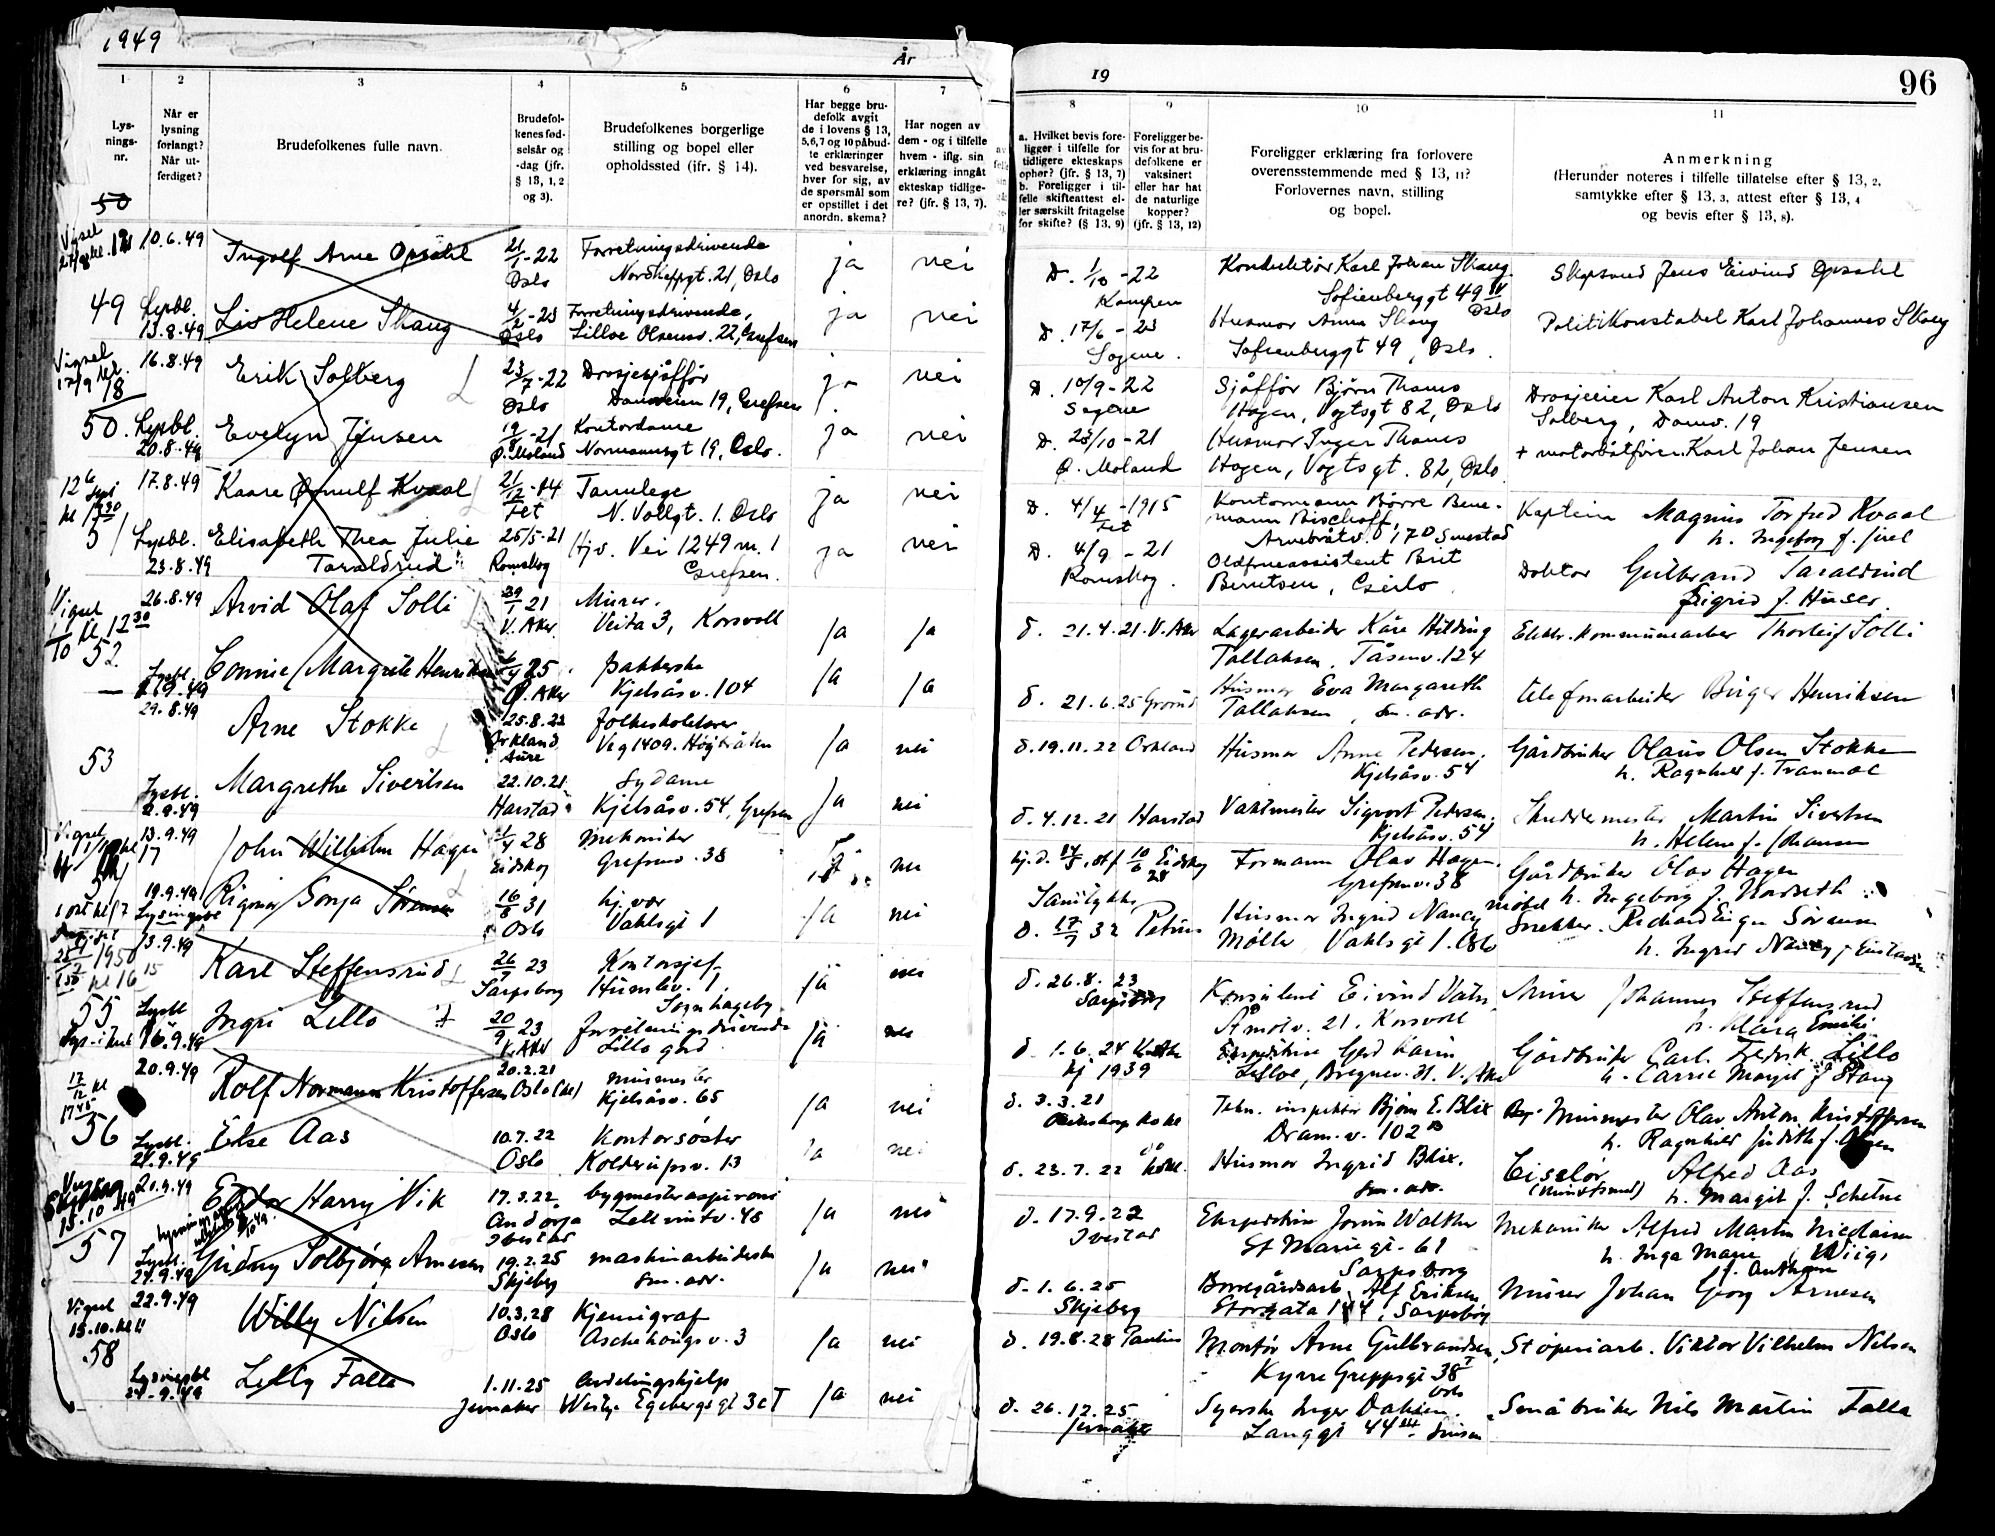 1949
År
1
2
3
4
5
6
7
Lys-
nings-
nr.
Når er
lysning
forlangt?
Når ut-
ferdiget?
Brudefolkenes fulle navn.
Brudefol-
kenes fød-
selsår og
-dag (jfr.
§ 13, 1, 2
og 3).
Brudefolkenes borgerlige
stilling og bopel eller
opholdssted (ifr. § 14).
Har begge bru-
defolk avgit
de i lovens § 13,
5,6,7 og 10 påbud-
te erklæringer
ved besvarelse,
hver for sig, av
de spørsmål som
er opstillet i det
anordn. skema?
Har nogen av
dem - og i tilfelle
hvem - iflg. sin
erklæring inngåt
ekteskap tidlige-
re? (jfr. § 13, 7).
50
10.6.49 Ingolf Arne Opsahl 21/1-22 Oslo Forretningsdrivende
Nordkappgt. 21, Oslo ja nei
49 Lysbl. 13.8.49 Liv Helene Skaug 4/2-23 Oslo Forretningsdrivende,
Lilloe Olsensv. 22, Grefsen ja nei
Vigsel 17/9 16.8.49 Erik Solberg 23/7-22 Oslo Drosjesjåffør
19, Grefsen ja nei
50. Lysbl. 20.8.49 Evelyn Jensen 19/8-21 Ø. Moland Kontordame
Normannsgt 19, Oslo. ja nei
17.8.49 Kaare Ørnulf Kvaal 21/12-14 Fet Tannlege
N. Vollgt. 1. Oslo ja nei
51 Lysbl. 23.8.49 Elisabeth Thea Julie
Taraldrud 25/5-21 Romskog Hjv. Vei 1249 nr. 1
Grefsen. ja nei
Vigsel 1/10 kl 12 30 26.8.49 Arvid Olaf Solli 29/1 21 V. Aker Murer.
Veita 3, Korsvoll ja ja
52 Lysbl. Connie Margrete Henriksen Ø. Aker pakkerske
Kjelsåsv. 104 ja ja
29.8.49 Arne Stokke 25.8.22 Orkland Aure folkeskolelærer
Veg 1409. Høybråten ja nei
53 Lysbl. 2.9.49 Margrethe Sivertsen 22.10.21 Harstad Sydame
Kjelsåsv. 54, Grefsen ja nei
Vigsel 13.9.49 John Wilhelm Hagen 28 Eidskog Mekaniker
Grefsenv. 38 nei
19.9.49 Lysningsbl Rigmor Sonja Sørensen 16/8 31 Oslo hj. vær
Vahlsgt 1 ja nei
1950 kl 16 15 13.9.49 Karl Steffensrud 26/7 23 Sarpsborg Kontorsjef
Humlev. 1,
Sognhageby ja nei
55 Lysbl 16.9.49 Ingri Lillo 20/9 23 V. Aker forretningsdrivende
Lillo gård ja nei
17/12 kl 17 45 20.9.49 Rolf Normann Kristoffersen 20.2.21 Oslo Minmester
Kjelsåsv. 65 ja nei
56 Lysbl. 24.9.49 Else Aas 10.7.22 Oslo Kontorsøster
Kolderupsv. 13 ja nei
Skjeberg 15.10.49 20.9.49 Harry Vik 17.3.22 Andørja Ibestad bygmesteraspirant
45 ja nei
57 Lysbl. 24.9.49 Gudny Solbjørg Arnesen 19.2.25 Skjeberg maskinarbeiderske
sm. adr. ja nei
Vigsel 15.10. kl 11 22.9.49 Willy Nilsen 10.3.28 Oslo Kjemigraf
Aschehougsv. 3 ja nei
58 Lysningsbl 24.9.49 Lilly Falla 1.11.25 Jevnaker Avdelingshjelp
Westye Egebergsgt 3c I ja nei
19
96
8
9
10
11
a. Hvilket bevis fore-
ligger i tilfelle for
tidligere ekteskaps
ophør? (jfr. § 13, 7)
b. Foreligger i til-
felle skifteattest el-
ler særskilt fritagelse
for skifte? (§ 13, 9)
Foreligger be-
vis for at bru-
defolkene er
vaksinert
eller har hat
de naturlige
kopper?
(jfr. § 13, 12)
Foreligger erklæring fra forlovere
overensstemmende med § 13, 11?
Forlovernes navn, stilling
og bopel.
Anmerkning
(Herunder noteres i tilfelle tillatelse efter § 13, 2,
samtykke efter § 13, 3, attest efter § 13, 4
og bevis efter § 13, 8).
D. 1/10-22 Kampen Konduktør Karl Johan Skaug.
Sofienberggt 49 Oslo Jens Eivind Opsahl
D. 17/6-23 Sagene. Husmor Anna Skaug
Sofienberggt 49, Oslo. Politikonstabel Karl Johannes Skaug
D. 10/9-22 Sagene Sjåffør Bjørn Thams
Hagen, Vogtsgt 82, Oslo Drosjeeier Karl Anton Kristiansen
Solberg, 19
D. 23/10-21 Ø. Moland Husmor Inger Thams
Hagen, Vogtsgt. 82, Oslo + motorbåtfører Karl Johan Jensen
D. 4/4-1915 Fet Kontormann Bjørre Bene-
mann Bischoff,
170 Smestad Kaptein Magnus Torfred Kvaal
h. Ingeborg f. Juel
D. 4/9-21 Romskog. Brit
Berntsen, Doktor Gulbrand Taraldrud
Sigrid f. Huser.
d. 21.4.21. V. Aker Lagerarbeider Kåre Hilding
Tallaksen, Tåsenv. 124 Elektr. kommunearb Thorleif Solli
d. 21.6.25 Grorud Husmor Eva Margareth
Tallaksen, sm. adr. telefonarbeider Birger Henriksen
d. 19.11.22 Orkland Husmor Anne Pedersen,
Kjelsåsv. 54 Gårdbruker Olaus Olsen Stokke
h. Ragnhild f. Tranmæl
d. 4.12.21 Harstad Vaktmester Sigvart Pedersen,
Kjelsåsv. 54 Skreddermester Martin Sivertsen
h. Helene f. Johansen
10/6 28 Eidskog Formann Olav Hagen.
Grefsenv. 38 Gårdbruker Olav Hagen
h. Ingeborg f.
Samtykke
d. 17/7 32 Petrus Husmor Ingrid Nancy
Møller Vahlsgt 1. Oslo Snekker. Richard Sørensen
h. Ingrid Nancy f.
d. 26.8.23 Sarpsborg Konsulent Eivind Vatn
Åmotv. 21. Korsvoll Murer Johannes Steffensrud
h. Klara Emilie
d. 1.6.24
kj 1939 Ekspeditrise Gerd Karin
Lilloe, Bregnev. 31. V. Aker Gårdbruker Carl Fredrik Lillo
h. Carrie Margit f. Stang
d. 3.3.21 Tekn. inspektør Bjørn E. Blix
Dram.v. 102 Minmester Olav Anton Kristoffersen
h. Ragnhild Judith f. Olsen
d. 23.7.22 Husmor Ingrid Blix.
sm. adr. Ciselør Alfred Aas
h. Margit f. Schetne
d. 17.9.22 Ibestad Ekspeditrise Jorun Walther
St Marie gt. 61
Sarpsborg Mekaniker Alfred Martin Nicolaisen
h. Inga Marie Wiig,
d. 1.6.25 Skjeberg Borregårdsarb. Alf Eriksen
Storgata 144, Sarpsborg Murer Johan Georg Arnesen
d. 19.8.28 Paulus Montør Arne Gulbrandsen,
Kyrre Greppsgt 38 I
Oslo Støperiarb. Viktor Vilhelm Nilsen
d. 26.12.25 Jevnaker Syerske Inger Dahlen.
Langgt 44 Småbruker Nils Martin Falla